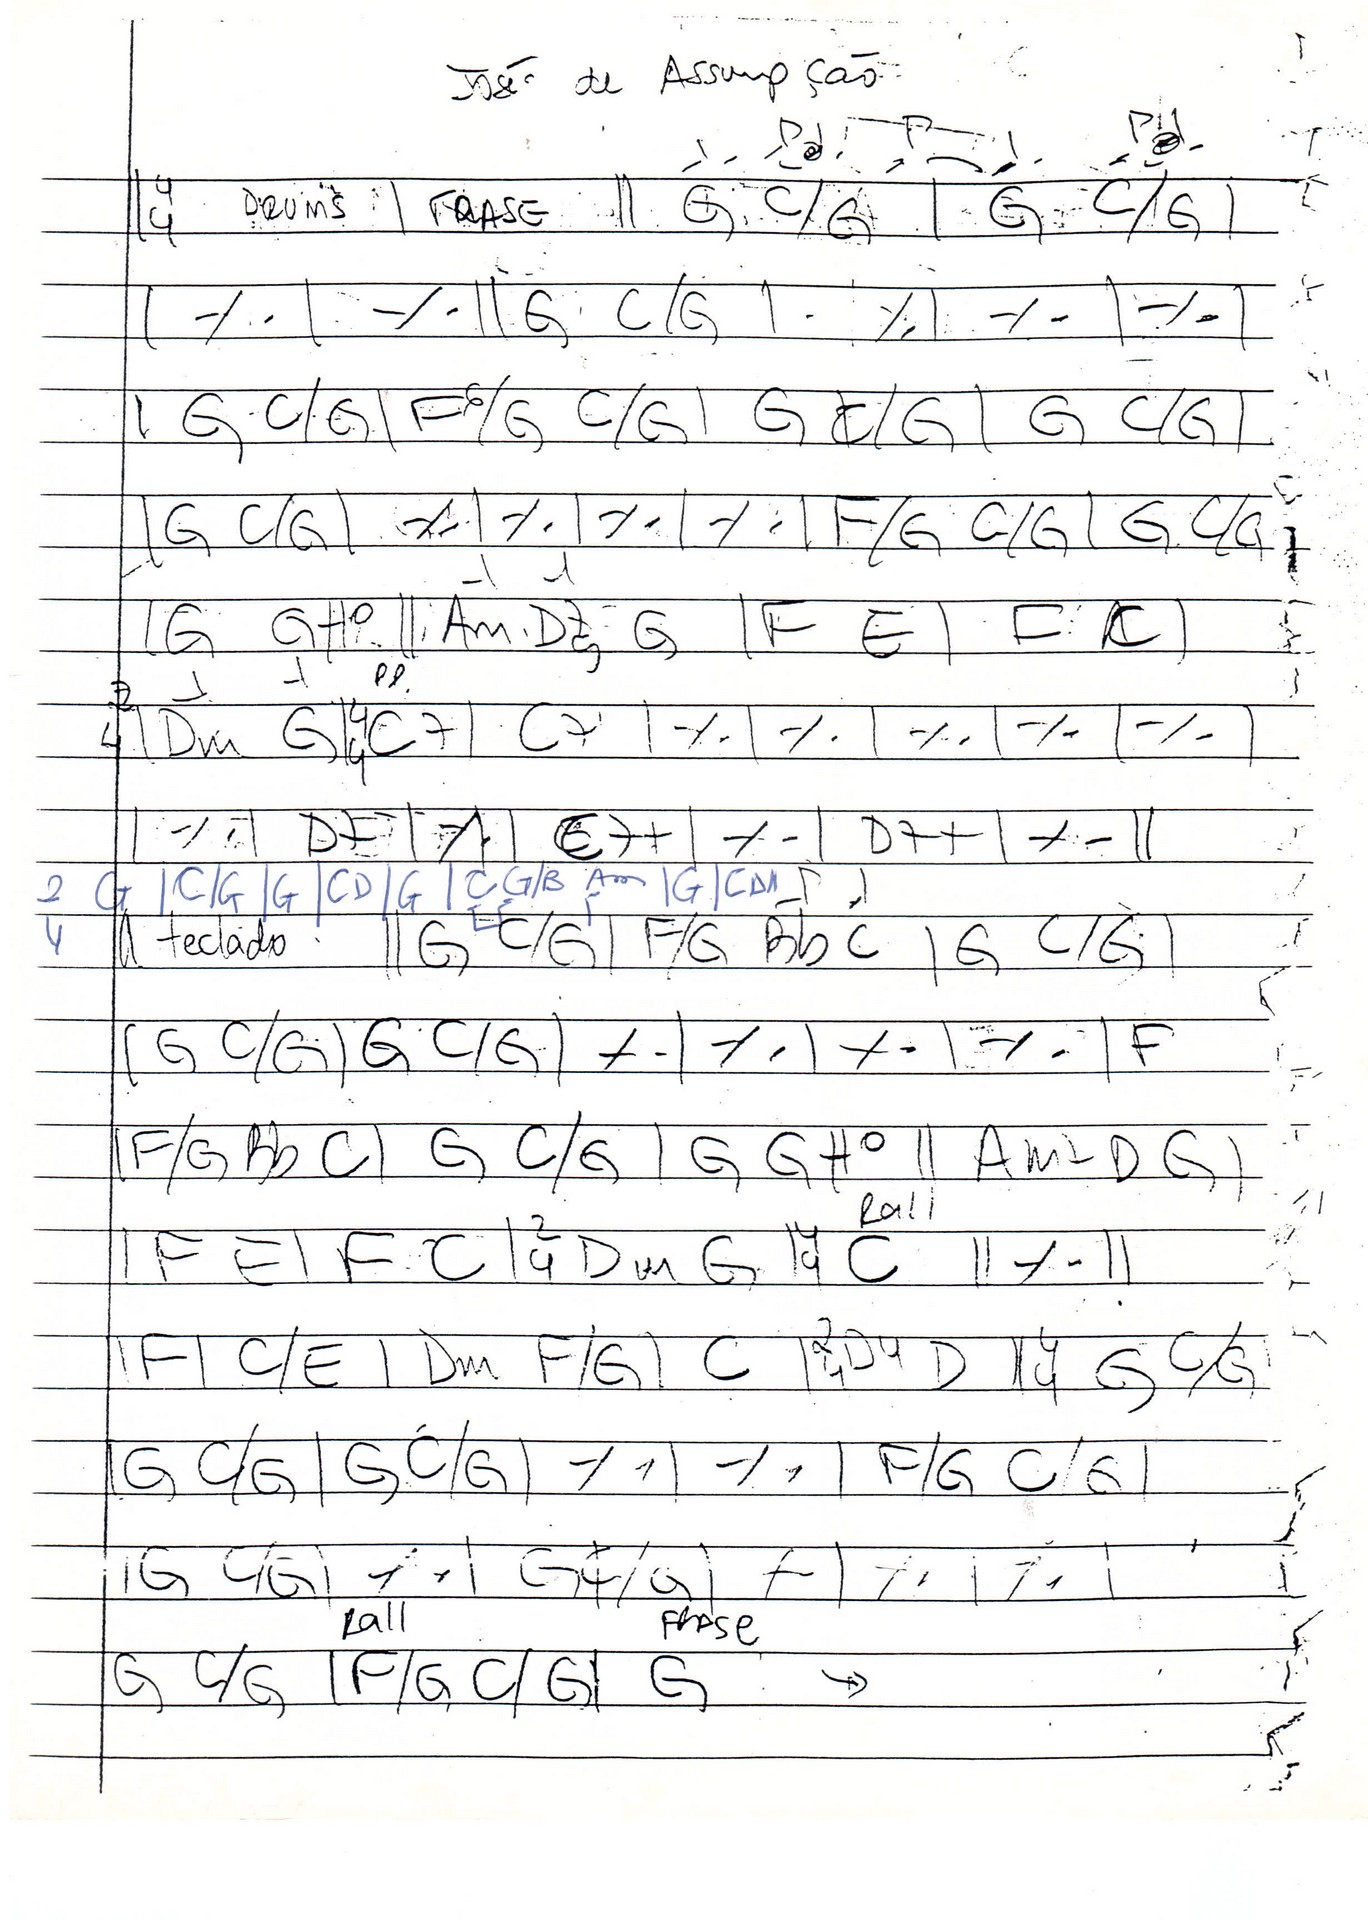 José de Assumpção
|| 4/4 DRUMS | FRASE || G C/G | G C/G |
| ٪ | ٪ || G C/G | ٪ | ٪ | ٪ |
| G C/G | F6/G C/G | G C/G | G C/G |
| G C/G | ٪ | ٪ | ٪ | ٪ | F/G C/G | G C/G
| G G#° || Am D7 G | F E | F C |
pp.
2/4 | Dm G | 4/4 C7 | C7 | ٪ | ٪ | ٪ | ٪ | ٪ |
| ٪ | D7 | ٪ | E7+ | ٪ | D7+ | ٪ ||
2/4 G | C/G | G | CD | G | C G/B Am | G | CD
teclado || G C/G | F/G Bb C | G C/G |
| G C/G | G C/G | ٪ | ٪ | ٪ | ٪ | F
| F/G Bb C | G C/G | G G#° || Am D G |
Rall
| F E | F C | 2/4 Dm G | 4/4 C || ٪ ||
| F | C/E | Dm F/G | C | 2/4 D4 D || 4/4 G C/G
| G C/G | G C/G | ٪ | ٪ | F/G C/G |
| G C/G | ٪ | G C/G | ٪ | ٪ | ٪ |
Rall FRASE
G C/G | F/G C/G | G →